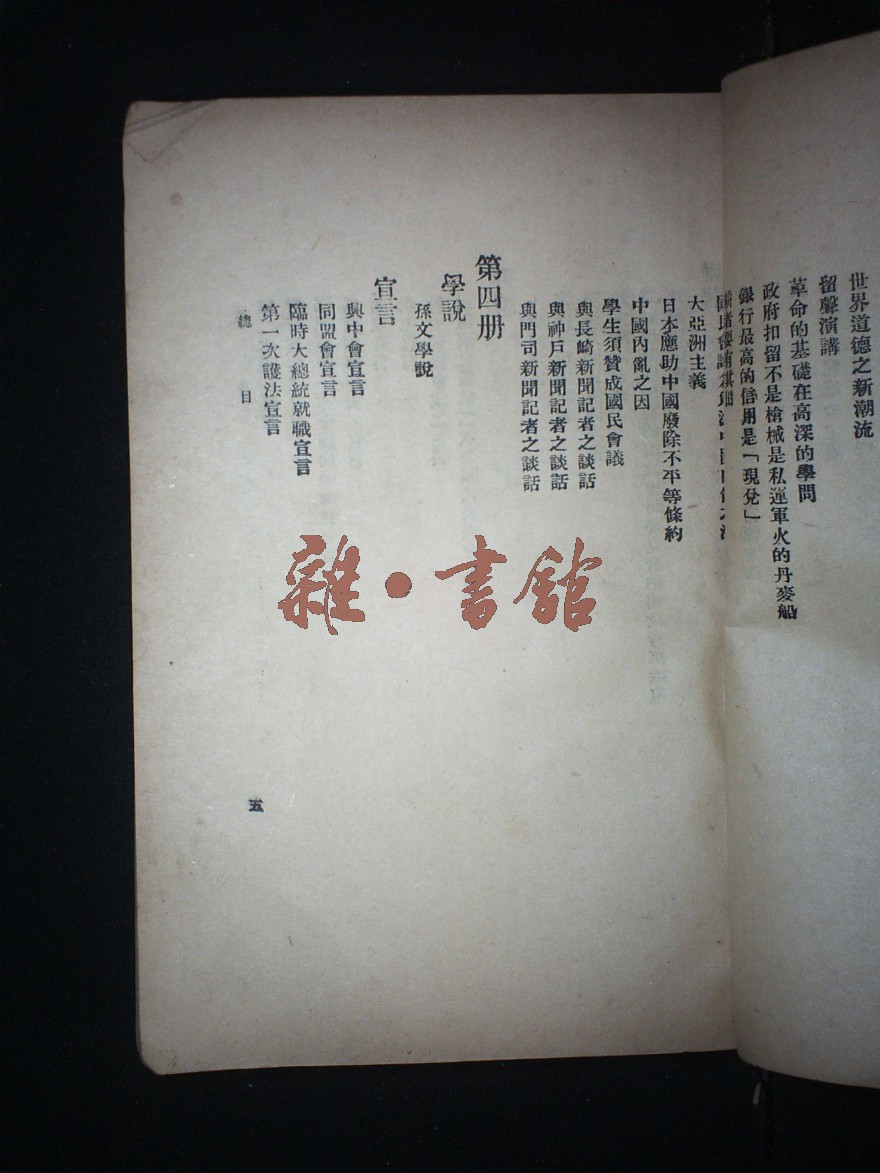 世界道德之新潮流
留聲演講
革命的基礎在高深的學問
政府扣留不是槍械是私運軍火的丹麥船
銀行最高的信用是「現兌」
大亞洲主義
日本應助中國廢除不平等條約
中國內亂之因
學生須贊成國民會議
與長崎新聞記者之談話
與神戶新聞記者之談話
與門司新聞記者之談話
第四册
學說
孫文學說
宣言
興中會宣言
同盟會宣言
臨時大總統就職宣言
第一次護法宣言
總目
五
雜·書館